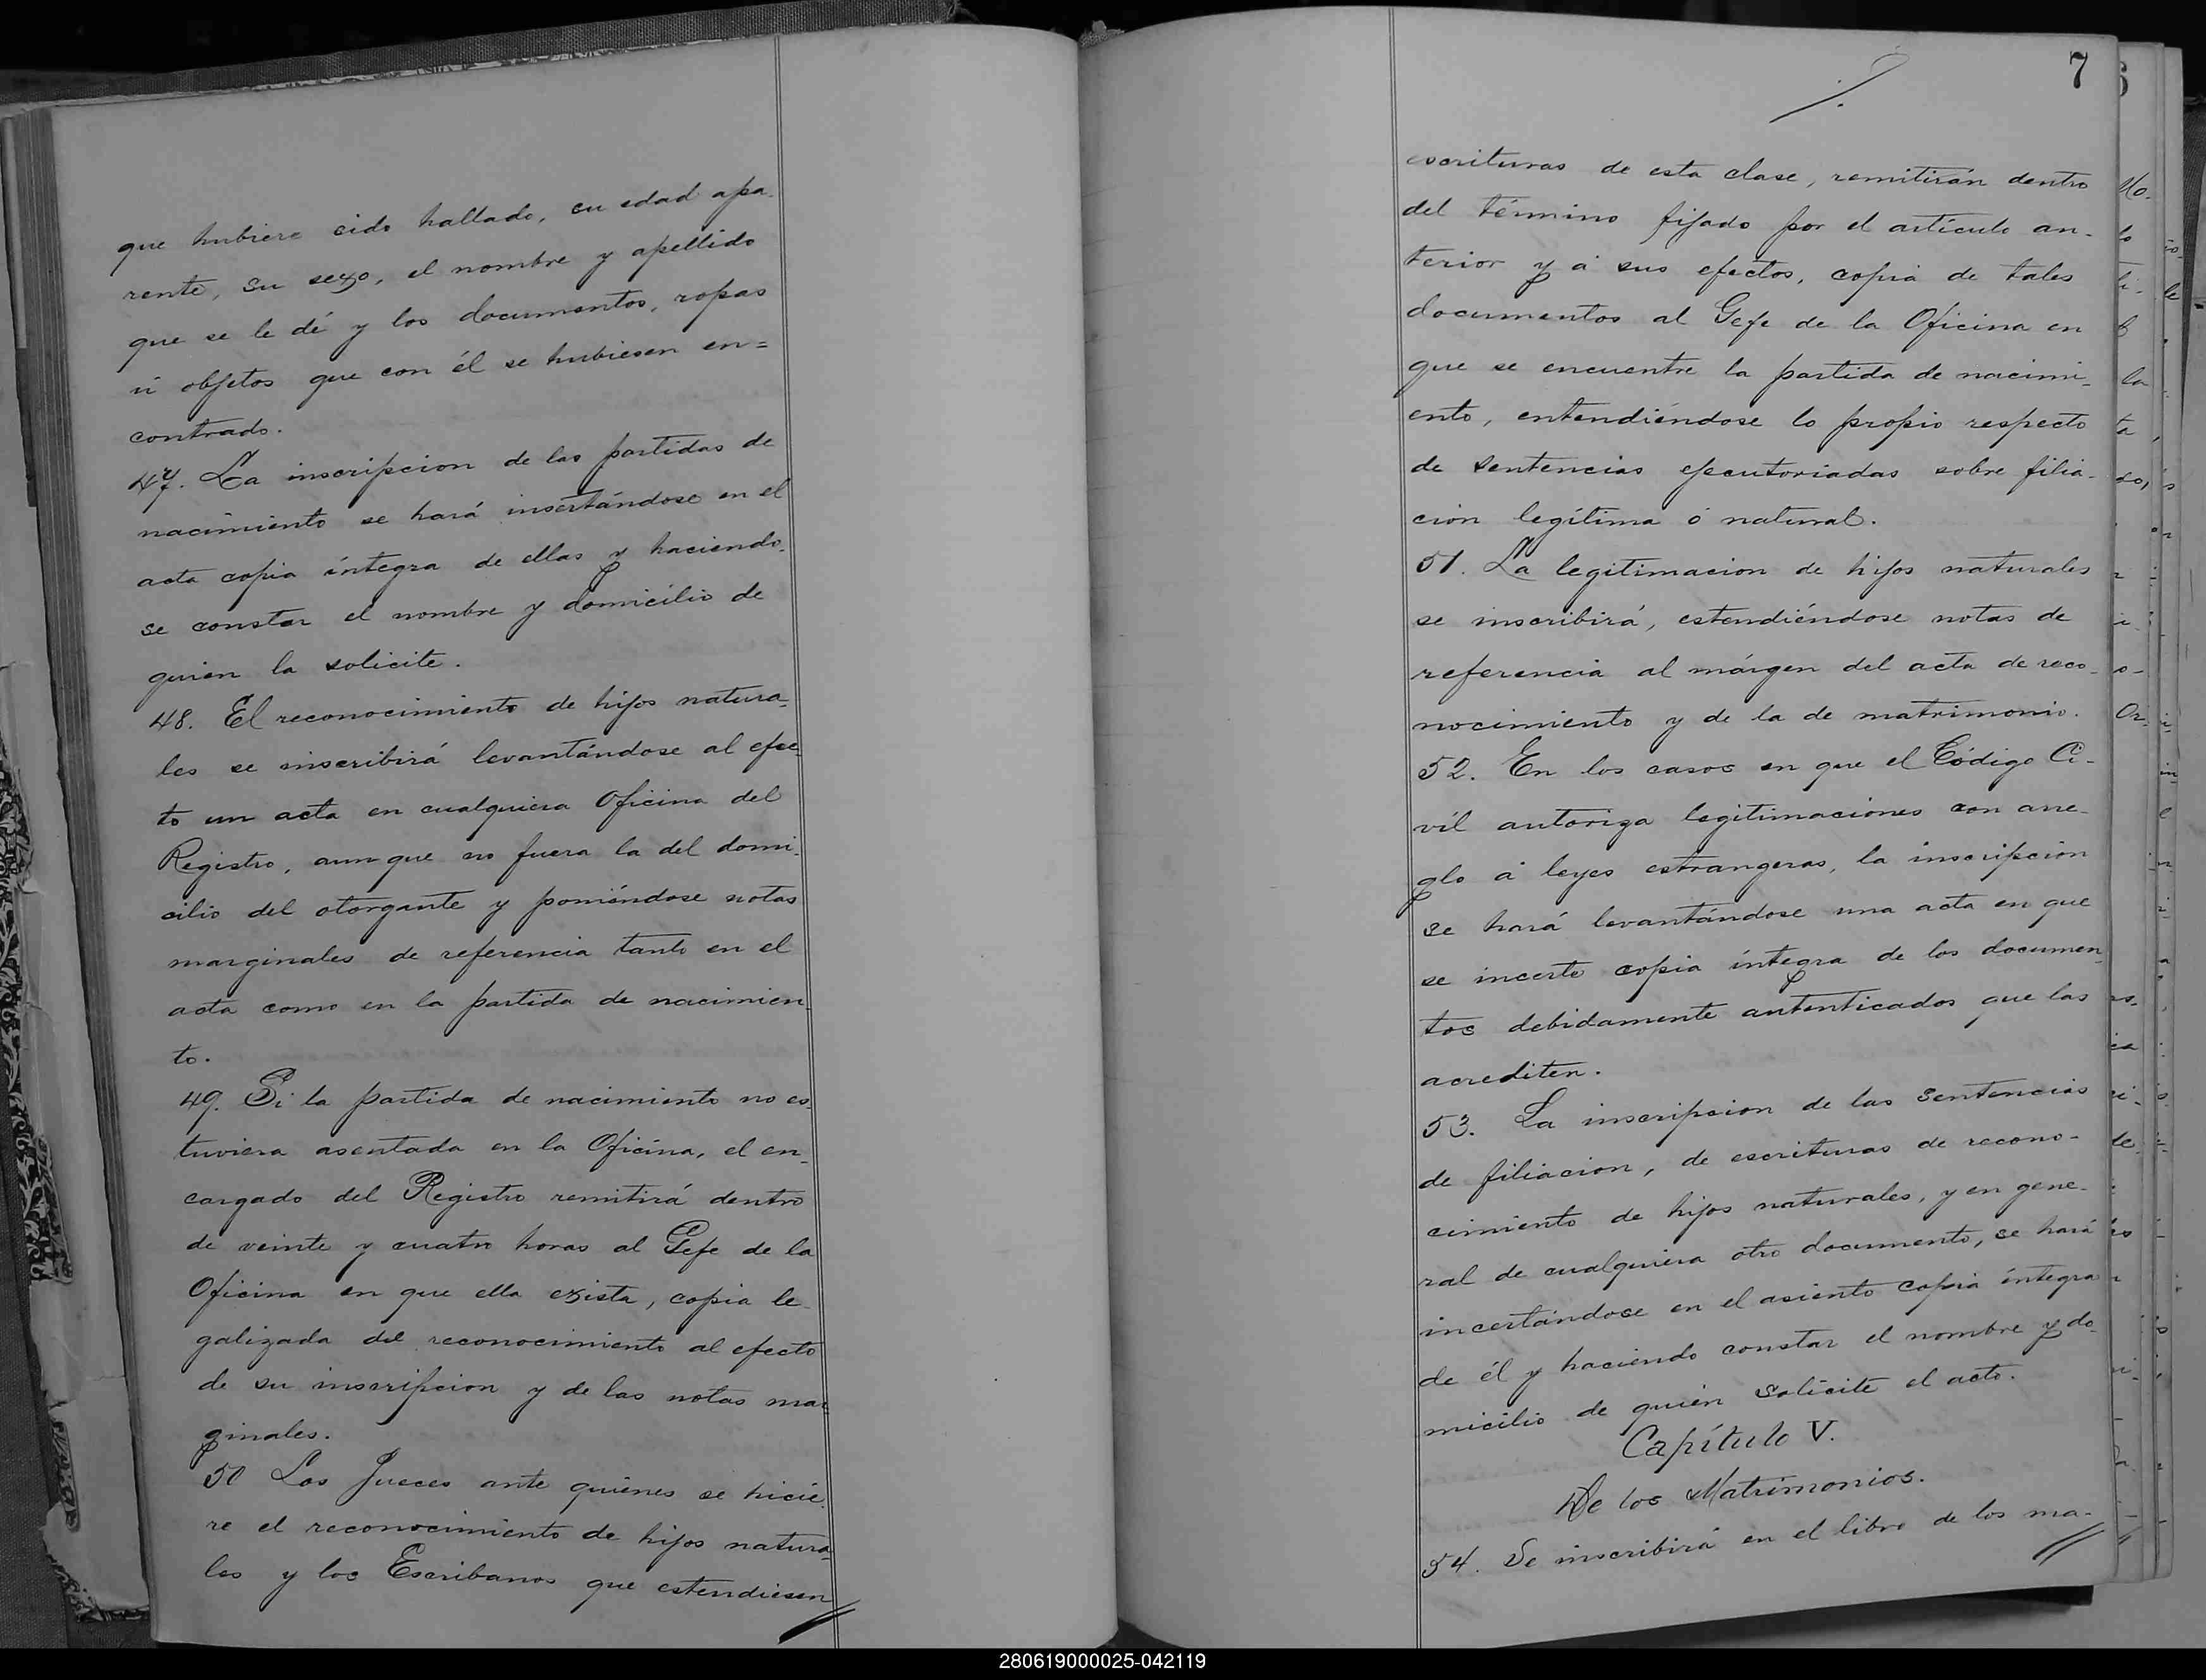 que hubiere sido hallado, su edad apa-
rente, su sexo, el nombre y apellido
que se le dé y los documentos, ropas
ú objetos que con él se hubiesen en=
contrado.
47. La inscripcion de las partidas de
nacimiento se hará insertándose en el
acta copia íntegra de ellas y haciendo-
se constar el nombre y domicilio de
quien la solicite.
48. El reconocimiento de hijos natura-
les se inscribirá levantándose al efec-
to un acta en cualquiera Oficina del
Registro, aunque no fuera la del domi-
cilio del otorgante y poniéndose notas
marginales de referencia tanto en el
acta como en la partida de nacimien-
to.
49. Si la partida de nacimiento no es-
tuviera asentada en la Oficina, el en-
cargado del Registro remitirá dentro
de veinte y cuatro horas al Gefe de la
Oficina en que ella exista, copia le-
galizada del reconocimiento al efecto
de su inscripcion y de las notas mar
ginales.
50 Los Jueces ante quienes se hicie-
re el reconocimiento de hijos natura-
les y los Escribanos que estendiesen
7
escrituras de esta clase, remitirán dentro
del término fijado por el artículo an-
terior y á sus efectos, copia de tales
documentos al Gefe de la Oficina en
que se encuentre la partida de nacimi-
ento, entendiéndose lo propio respecto
de sentencias ejecutoriadas sobre filia-
cion legítima ó natural.
51. La legitimacion de hijos naturales
se inscribirá, estendiéndose notas de
referencia al márgen del acta de reco-
nocimiento y de la de matrimonio.
52. En los casos en que el Código Ci-
vil autoriza legitimaciones con arre-
glo á leyes estrangeras, la inscripcion
se hará levantándose una acta en que
se incerte copia íntegra de los documen-
tos debidamente autenticados que las
acrediten.
53. La inscripcion de las sentencias
de filiacion, de escrituras de recono-
cimiento de hijos naturales, y en gene-
ral de cualquiera otro documento, se hará
incertándose en el asiento copia íntegra
de él y haciendo constar el nombre y do-
micilio de quién solicite el acto.
Capítulo V.
De los Matrimonios.
54. Se inscribirá en el libro de los ma-
280619000025-042119